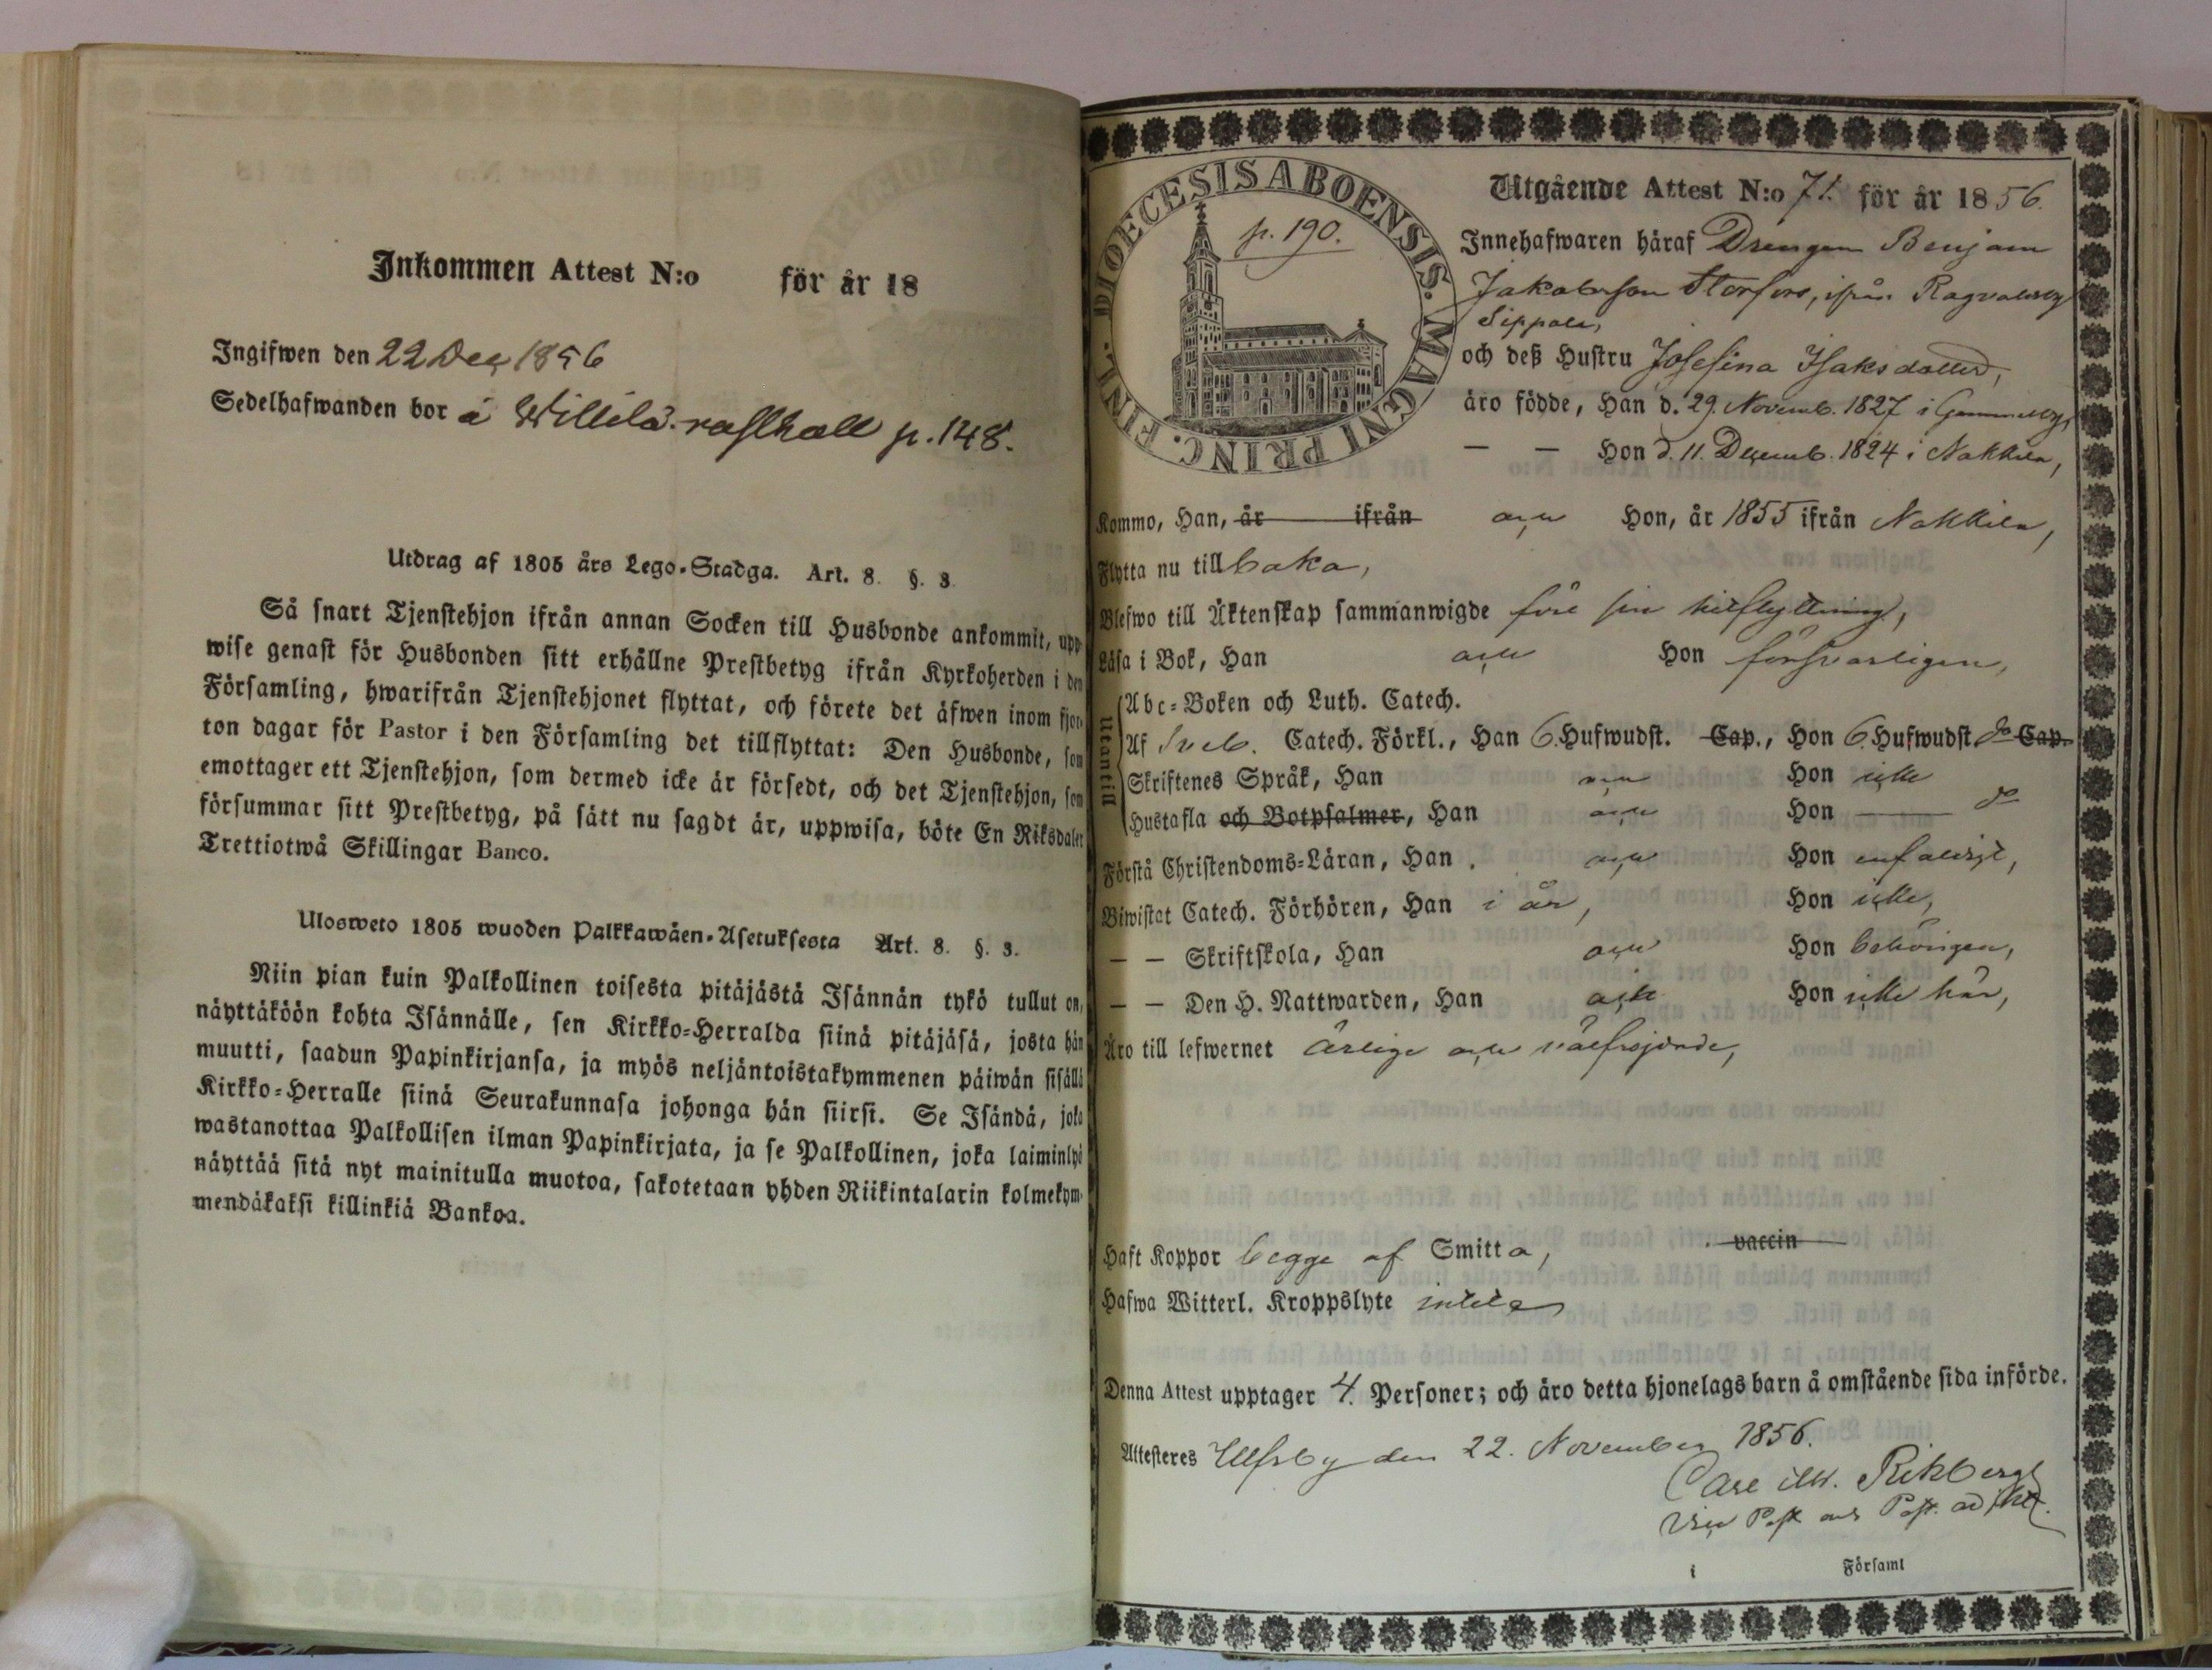 Inkommen Attest N:o för år 18
Ingifwen den 22 Dec 1856
Sedelhafwanden bor å Willilä rasthåll p. 148.
Utdrag af 1805 års Lego-Stadga. Art. 8. §. 3.
Så snart Tjenstehjon ifrån annan Socken till Husbonde ankommit, upp-
wise genast för Husbonden sitt erhållne Prestbetyg ifrån Kyrkoherden i den
Församling, hwarifrån Tjenstehjonet flyttat, och förete det äfwen inom fjor-
ton dagar för Pastor i den Församling det tillflyttat: Den Husbonde, som
emottager ett Tjenstehjon, som dermed icke är försedt, och det Tjenstehjon, som
försummar sitt Prestbetyg, på sätt nu sagdt är, uppwisa, böte En Riksdaler
Trettiotwå Skillingar Banco.
Ulosweto 1805 wuoden Palkkawäen-Asetuksesta Art. 8. §. 3.
Niin pian kuin Palkollinen toisesta pitäjästä Isännän tykö tullut on,
näyttäköön kohta Isännälle, sen Kirkko-Herralda siinä pitäjäsä, josta hän
muutti, saadun Papinkirjansa, ja myös neljäntoistakymmenen päiwän sisällä
Kirkko-Herralle siinä Seurakunnasa johonga hän siirsi. Se Isändä, joka
wastanottaa Palkollisen ilman Papinkirjata, ja se Palkollinen, joka laiminlyö
näyttää sitä nyt mainitulla muotoa, sakotetaan yhden Riikintalarin kolmekym-
mendäkaksi killinkiä Bankoa.
DIOECESIS ABOENSIS. MAGNI PRINC. FINL.
p. 190.
Utgående Attest N:o 71. för år 1856.
Innehafwaren häraf Drengen Benjam
Jakobsson Storfors, ifrån Ragvaldsby
Sippola,
och deß Hustru Josefina Isaksdotter,
äro födde, Han d. 29. Novemb. 1827 i Gammelby,
— — Hon d. 11. Decemb. 1824 i Nakkila,
Kommo, Han, år ifrån och Hon, år 1855 ifrån Nakkila,
Flytta nu tillbaka,
Blefwo till Äktenskap sammanwigde före sin hitflyttning,
Läsa i Bok, Han och Hon försvarligen,
Utantill
Abc-Boken och Luth. Catech.
Af Sveb. Catech. Förkl., Han 6. Hufwudst. Cap., Hon 6. Hufwudst. Cap.
Skriftenes Språk, Han och Hon icke
Hustafla och Botpsalmer, Han och Hon — do
Förstå Christendoms-Läran, Han och Hon enfaldigt,
Biwistat Catech. Förhören, Han i år, Hon icke,
— — Skriftskola, Han och Hon behörigen,
— — Den H. Nattwarden, Han och Hon icke här,
Äro till lefwernet ärlige och välfrejdade,
Haft Koppor begge af Smitta, vaccin
Hafwa Witterl. Kroppslyte intet
Denna Attest upptager 4. Personer; och äro detta hjonelags barn å omstående sida införde.
Attesteres Ulfsby den 22. November 1856.
Carl W. Rikberg
Vice Past. och Past. adjkt.
i Församl